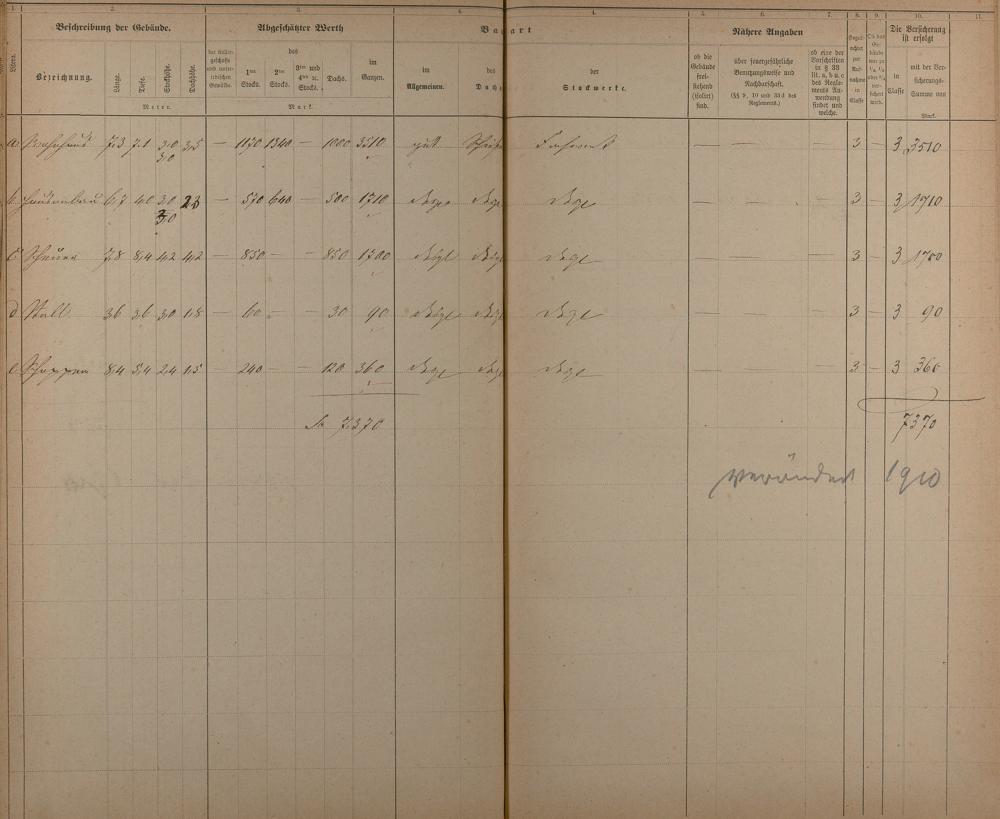 1. 2. 3. 4. 4. 5. 6. 7. 8. 9. 10. 11.
Beschreibung der Gebäude. Abgeschätzter Werth Bauart Nähere Angaben Die Versicherung ist erfolgt
Bezeichnung. Länge. Tiefe. Stockhöhe. Dachhöhe.
Meter.
der Keller-geschosse und unter-irdischen Gewölbe.
des
1ten Stocks. 2ten Stocks. 3ten und 4ten ic. Stocks. Dachs.
im Ganzen.
Mark.
im Allgemeinen. des Dachs der Stockwerke.
ob die Gebäude frei-stehend (isolirt) sind.
über feuergefährliche Benutzungsweise und Nachbarschaft.
(§§ 9, 10 und 33 d des Reglements.)
ob eine der Vorschriften in § 33 lit. a, b u. c des Regle-ments An-wendung findet und welche.
in Classe
mit der Ver-sicherungs-Summe von
Mark.
a Wohnhaus 7,3 7,1 3,0 3,5 — 1170 1340 — 1000 3510 gut Fachwerk — — — 3 — 3 3510
3,0
b 6,7 4,0 3,0 2,3 — 570 640 — 500 1710 desgl desgl desgl — — — 3 — 3 1710
3,0
c Scheuer 7,8 8,4 4,2 4,2 — 850 — — 850 1700 desgl desgl desgl — — — 3 — 3 1700
d Stall 3,6 3,6 3,0 1,8 — 60 — — 30 90 desgl desgl desgl — — — 3 — 3 90
e Schoppen 8,4 5,4 2,4 1,5 — 240 — — 120 360 desgl desgl desgl — — — 3 — 3 360
7370 7370
Verändert 1910